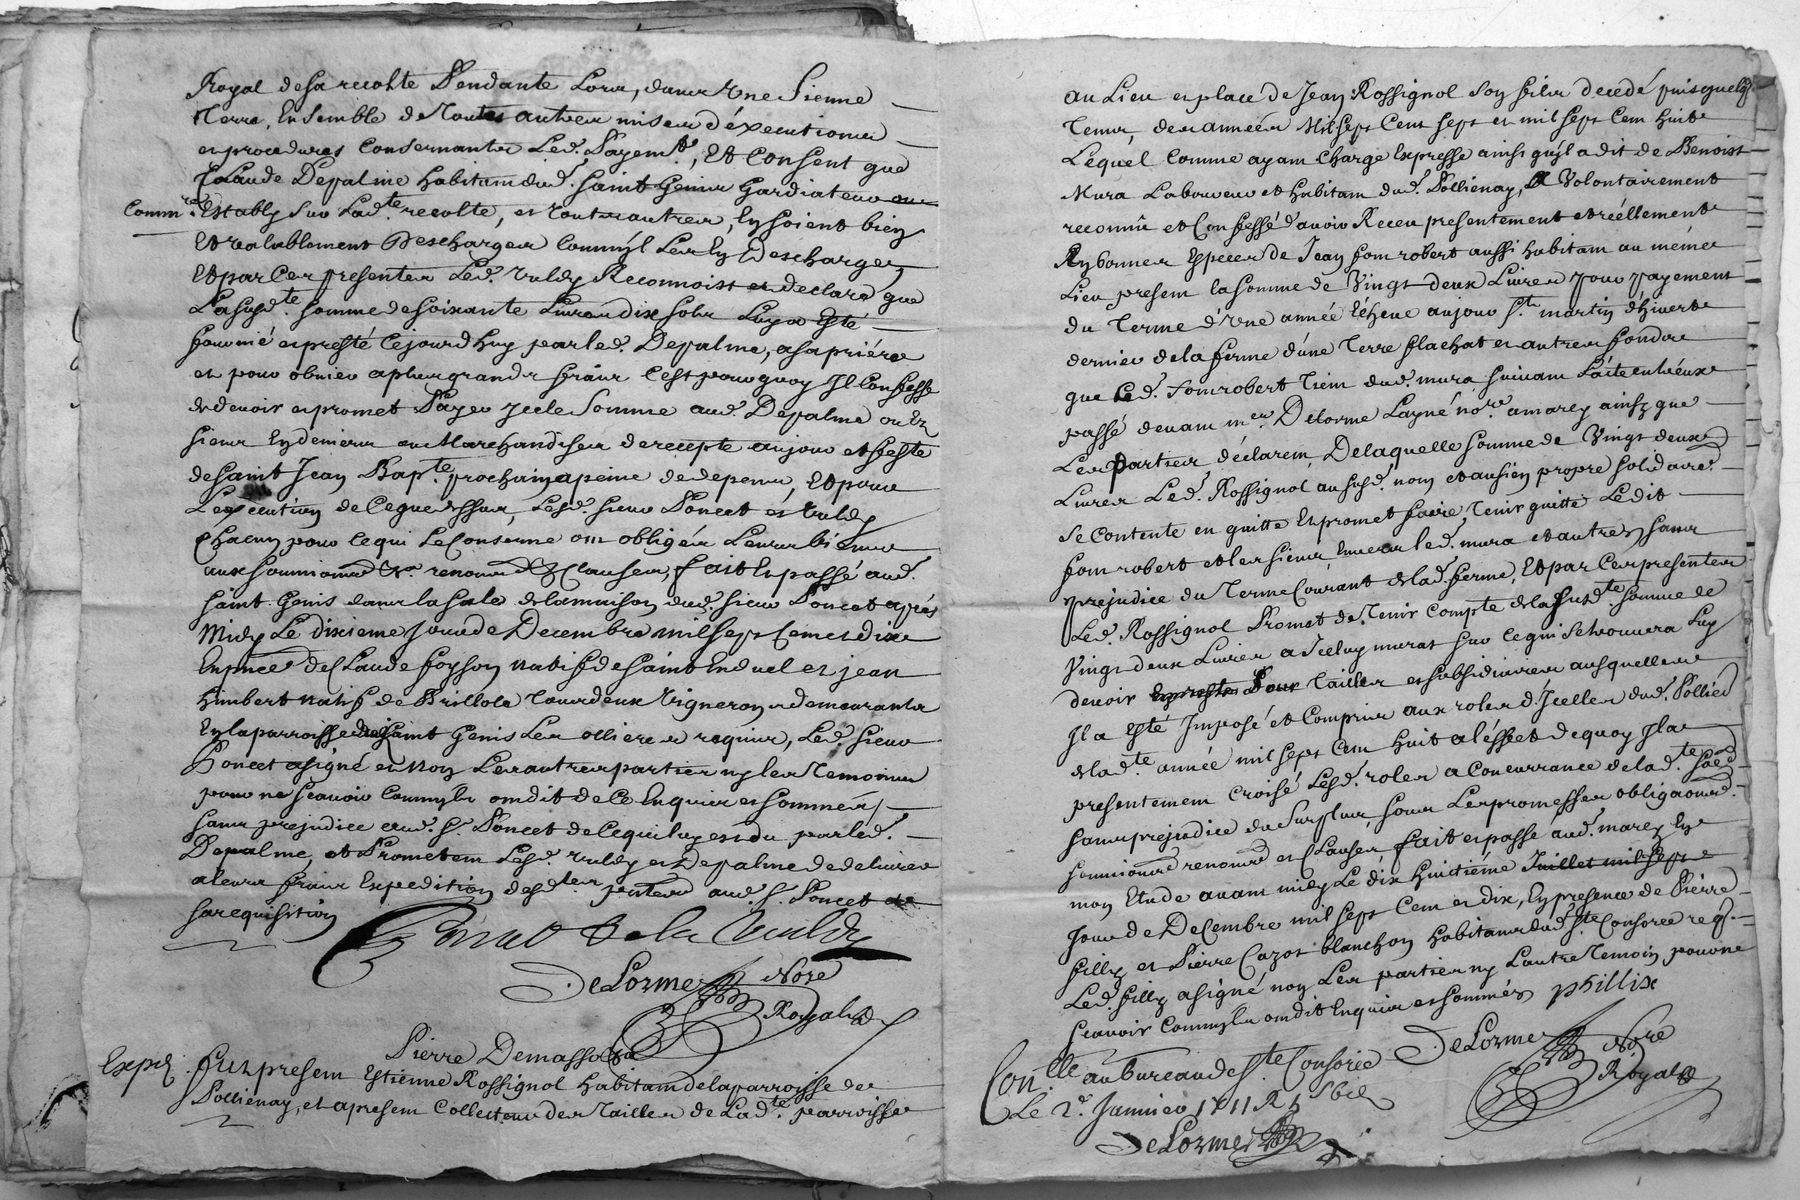 Royal de sa recolte Pendante Lors, dans Une Sienne
Terre, Ensemble de Toutes autres mises d'éxecutions
et procedures Consernantes Led. Payemt, Et Consent que
Claude Depalme habitant dud. Saint Genis Gardiateur ou
Commre Estably sur Lad.te recolte, et tous autres, En soient bien
Et valablement Descharges Comm'jl Les En Descharge,
Et par Ces presentes Led. Reconnoist et declare que
La susd.te somme de soixante Livres dix sols Luy a Esté
fournié et presté Cejourdhuy par led. Depalme, a sa priére
et pour obvier a plus grands frais C'est pourquoy Jl Confesse
de devoir et promet Payer jcelle Somme aud. Depalme ou Es
siens En deniers ou Marchandises de recepte au jour et feste
de saint Jean Bapte. prochain a peine de depens, Et pour
L'execution de Ceque dessus, Lesd. sieur Poncet et
Chacun pour Ce qui Le Conserne ont obligés Leurs biens
aux soumions & renons & Clauses, fait En passé aud.
saint Genis dans la sale de la maison dud. sieur Poncet aprés
Midy Le dixieme Jour de Decembre mil sept Cent et dix
En pnce de Claude foyson natif de saint et jean
himbert natif de Brillole Tous deux Vignerons demeurants
En la parroisse de saint Genis Les ollieres requis, Led. sieur
Poncet a signé et Non Les autres parties ny les Temoins
pour ne scavoir Comm'ils ont dit de Ce Enquis et sommés /
sans prejudice aud. S. Poncet de Ce qui luy est du par led.
Depalme, et Prometent Lesd. et Depalme de delivrer
a leurs frais Expedition desd.tes pntes aud. S. Poncet de
sa requisition
DeLorme Nore
Royal
Pierre Demasso
Exped. fust present Estienne Rossignol habitant de la parroisse de
Pollienay, et a present Collecteur des Tailles de Lad.te parroisse
au Lieu et place de Jean Rossignol son fils decedé puis quelq.
Temps des années Mil sept Cent sept et mil sept Cent huit
Lequel Comme ayant Charge Expresse ainsi qu'jl a dit de Benoist
Mura Laboureur et habitant dud. Pollienay, A Volontairement
reconnû et Confessé d'avoir Receu presentement et réellement
En bonnes Especes de Jean fontrobert aussi habitant au même
Lieu present la somme de Vingt deux Livres pour payement
du Terme d'Une année Echeue au jour St. martin d'hiverd
dernier de la ferme d'une Terre flachat et autres fonds
que Led. fontrobert Tient dud. mura suivant L'acte
passé devant me. Delorme Layné nore. a marcy ainsy que
Les Parties déclarent, De laquelle somme de Vingt deux
Livres Led. Rossignol au susd. nom et au sien propre solidaire.
se Contente en quitte Et promet faire Tenir quitte Ledit
fontrobert et les siens Envers led. mura et autres sans
prejudice du Terme Courant de lad. ferme, Et par Ces presentes
Led. Rossignol Promet de Tenir Compte de la susd.te somme de
Vingt deux Livres a Jceluy muras sur Ce qui se trouvera Luy
devoir Pour Tailles et subsidiaires ausquelles
Jl a Esté Jmposé et Compris aux roles d'Jcelles dud. Pollie.
de lad.te année mil sept Cent huit a l'éffet dequoy Jl a
presentement Croisé Lesd. roles a Concurrance de lad.te so.
sans prejudice du Surplus, sous Les promesses obligaons.
soumions renons et Clauses fait et passé aud. marcy En
mon Etude avant midy Le dix huictiéme Juillet mil sept
Jour de Decembre mil sept Cent et dix, En presence de Piérre
filly et Pierre Cazot blanchon habitans dud. Ste. Consorce req.
Led. filly a signé non Les parties ny L'autre Temoin pour ne
scavoir Comm'ils ont dit Enquis et sommés phillix
DeLorme Nore
Royal
Conlle. au Bureau de Ste Consorce
Le 2e. Janvier 1711 R
DeLorme